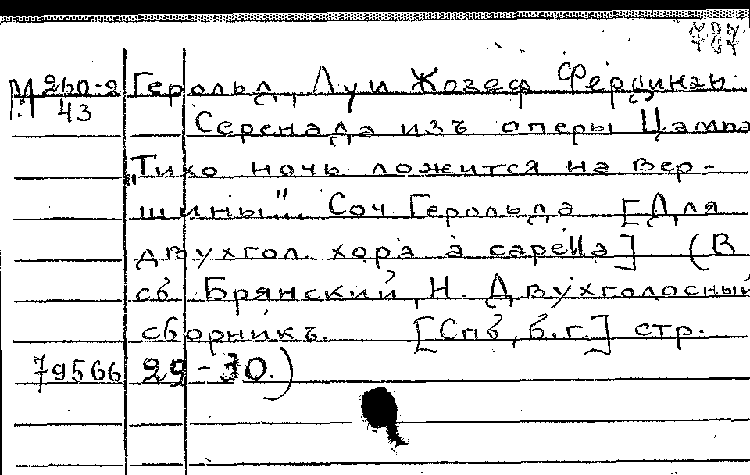 787
М 260-2 Герольд, Луи Жозеф Фердинан.
43 Серенада изъ оперы Цампа
„Тихо ночь ложится на вер-
шины". Соч. Герольда [Для
двухгол. хора a capella] (В
сб. Брянский, Н. Двухголосный
сборникъ. [Спб, б.г.] стр.
79566 29-30.)